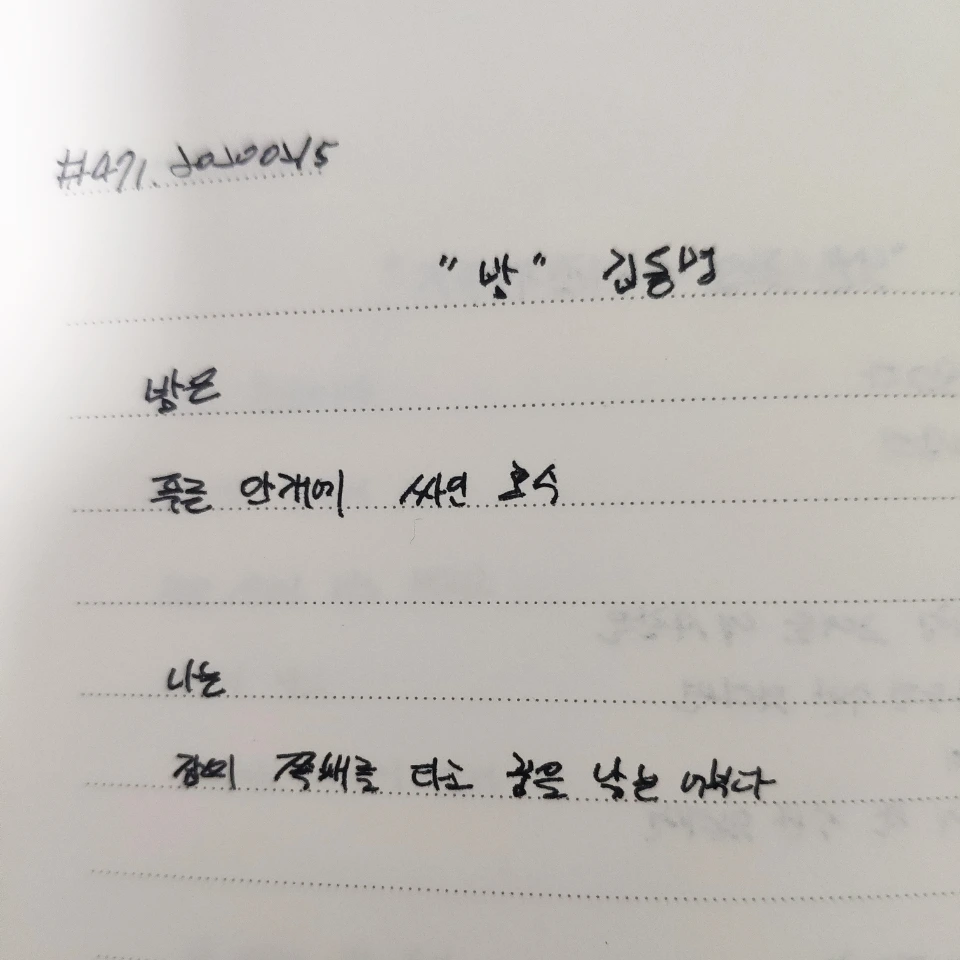 #471. 20200415
"밤" 김동명
밤은
푸른 안개에 싸인 호수
나는
잠의 쪽배를 타고 꿈을 낚는 어부다